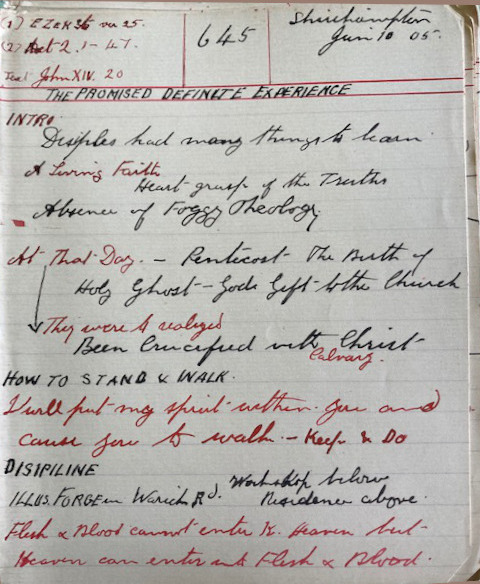 (1) EZEK 36 vr 25. 645 Shirehampton
(2) Act 2. 1-47. Jun 10 05.
Text John XIV. 20
THE PROMISED DEFINITE EXPERIENCE
INTRO
Disiples had many things to learn
A Living Faith
Heart grasp of the Truths
Absence of Foggy Theology.
At That Day. - Pentecost - The Birth of
Holy Ghost - Gods Gift to the Church
They were to realized
Been Crucified with Christ
Calvary.
HOW TO STAND & WALK.
I will put my spirit within you and
cause you to walk. - Keep & Do
DISIPILINE
ILLUS. FORGE in Warick Rd. Workshop below
Residence above.
Flesh & Blood cannot enter K. Heaven but
Heaven can enter into Flesh & Blood.